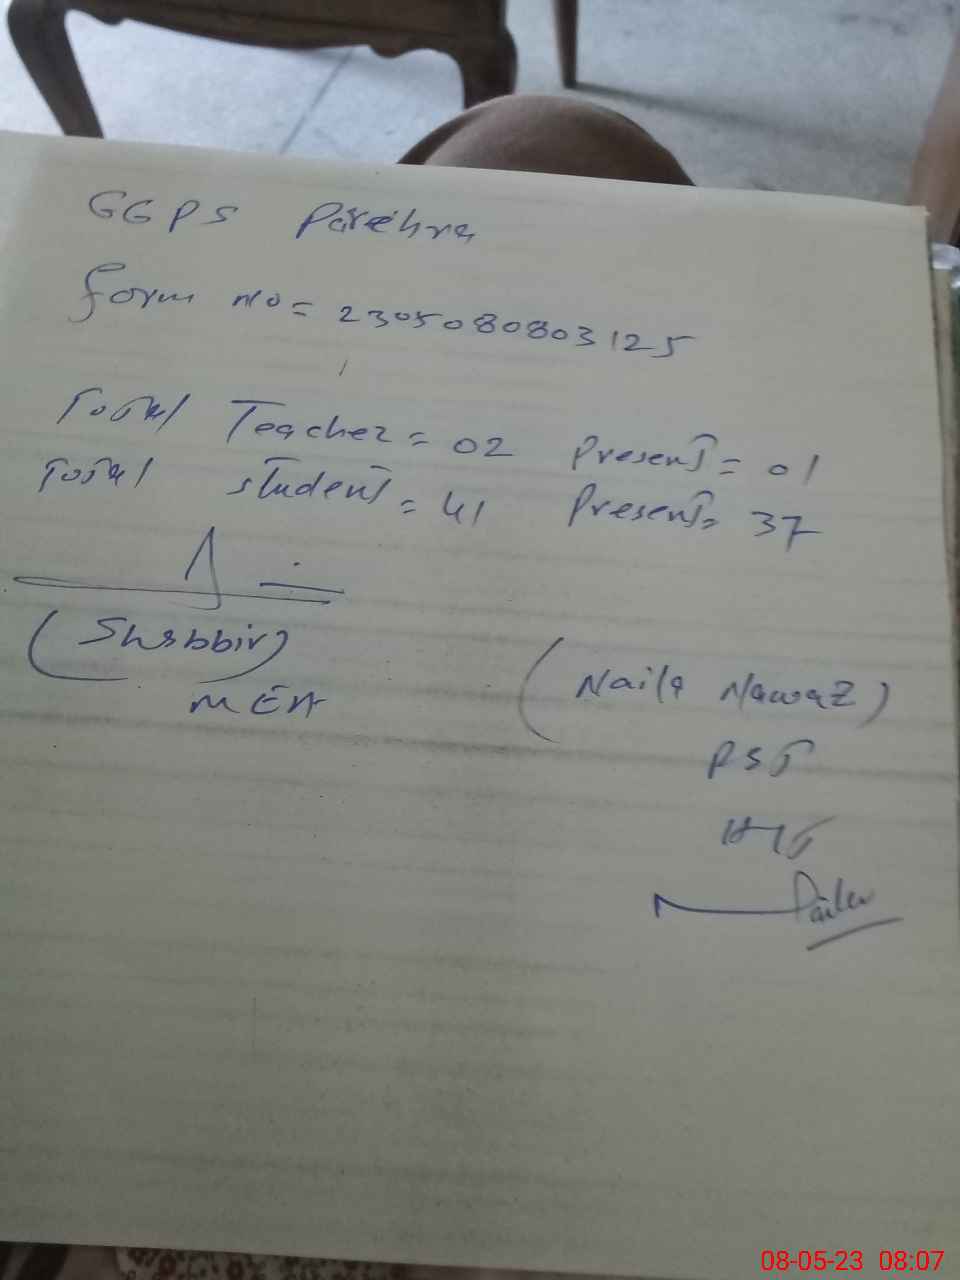 GGPS Parehra
form no = 2305080803125
Total Teacher = 02 Present = 01
Total student = 41 Present = 37
(Shabbir)
MEA
(Naila Nawaz)
PST
H/T
Naila
08-05-23 08:07